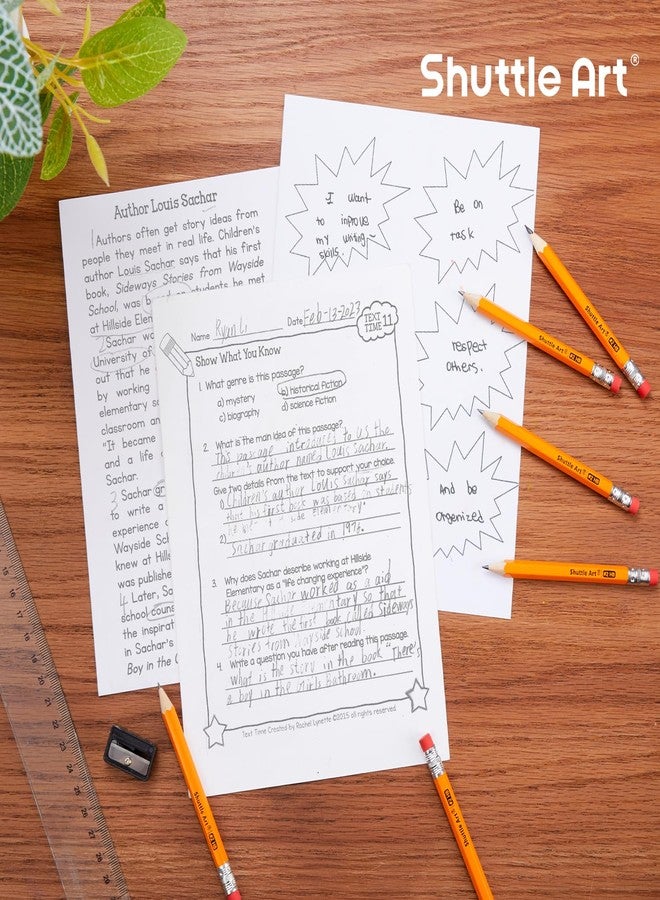 Shuttle Art®
Author Louis Sachar
Authors often get story ideas from
people they meet in real life. Children's
author Louis Sachar says that his first
book, Sideways Stories from Wayside
School, was students he met
at Hillside
Sachar
University of
out that he
by working
elementary
classroom and
"It became
and a life
Sachar.
Sachar
to write a
experience
Wayside
knew at
was published
Later,
school
the
in Sachar's
Boy in the
I want
to improve
my writing
skills.
Be on
task
respect
others.
And be
organized
Name Date Feb-13-2023
TEXT
TIME 11
Show What You Know
1. What genre is this passage?
a) mystery b) historical fiction
c) biography d) science fiction
2. What is the main idea of this passage?
This passage introduces to us the
author named Louis Sachar.
Give two details from the text to support your choice.
1) Children's author Louis Sachar says
his first book was based on students
2)
Sachar graduated in 1976.
3. Why does Sachar describe working at Hillside
Elementary as a "life changing experience"?
Because Sachar worked as a aid
in the so that
he wrote the first book called Sideways
Stories from Wayside School.
4. Write a question you have after reading this passage.
What is the story in the book "There's
a boy in the girls bathroom.
Text Time Created by Rachel Lynette ©2015 all rights reserved
Shuttle Art
Shuttle Art
Shuttle Art
Shuttle Art